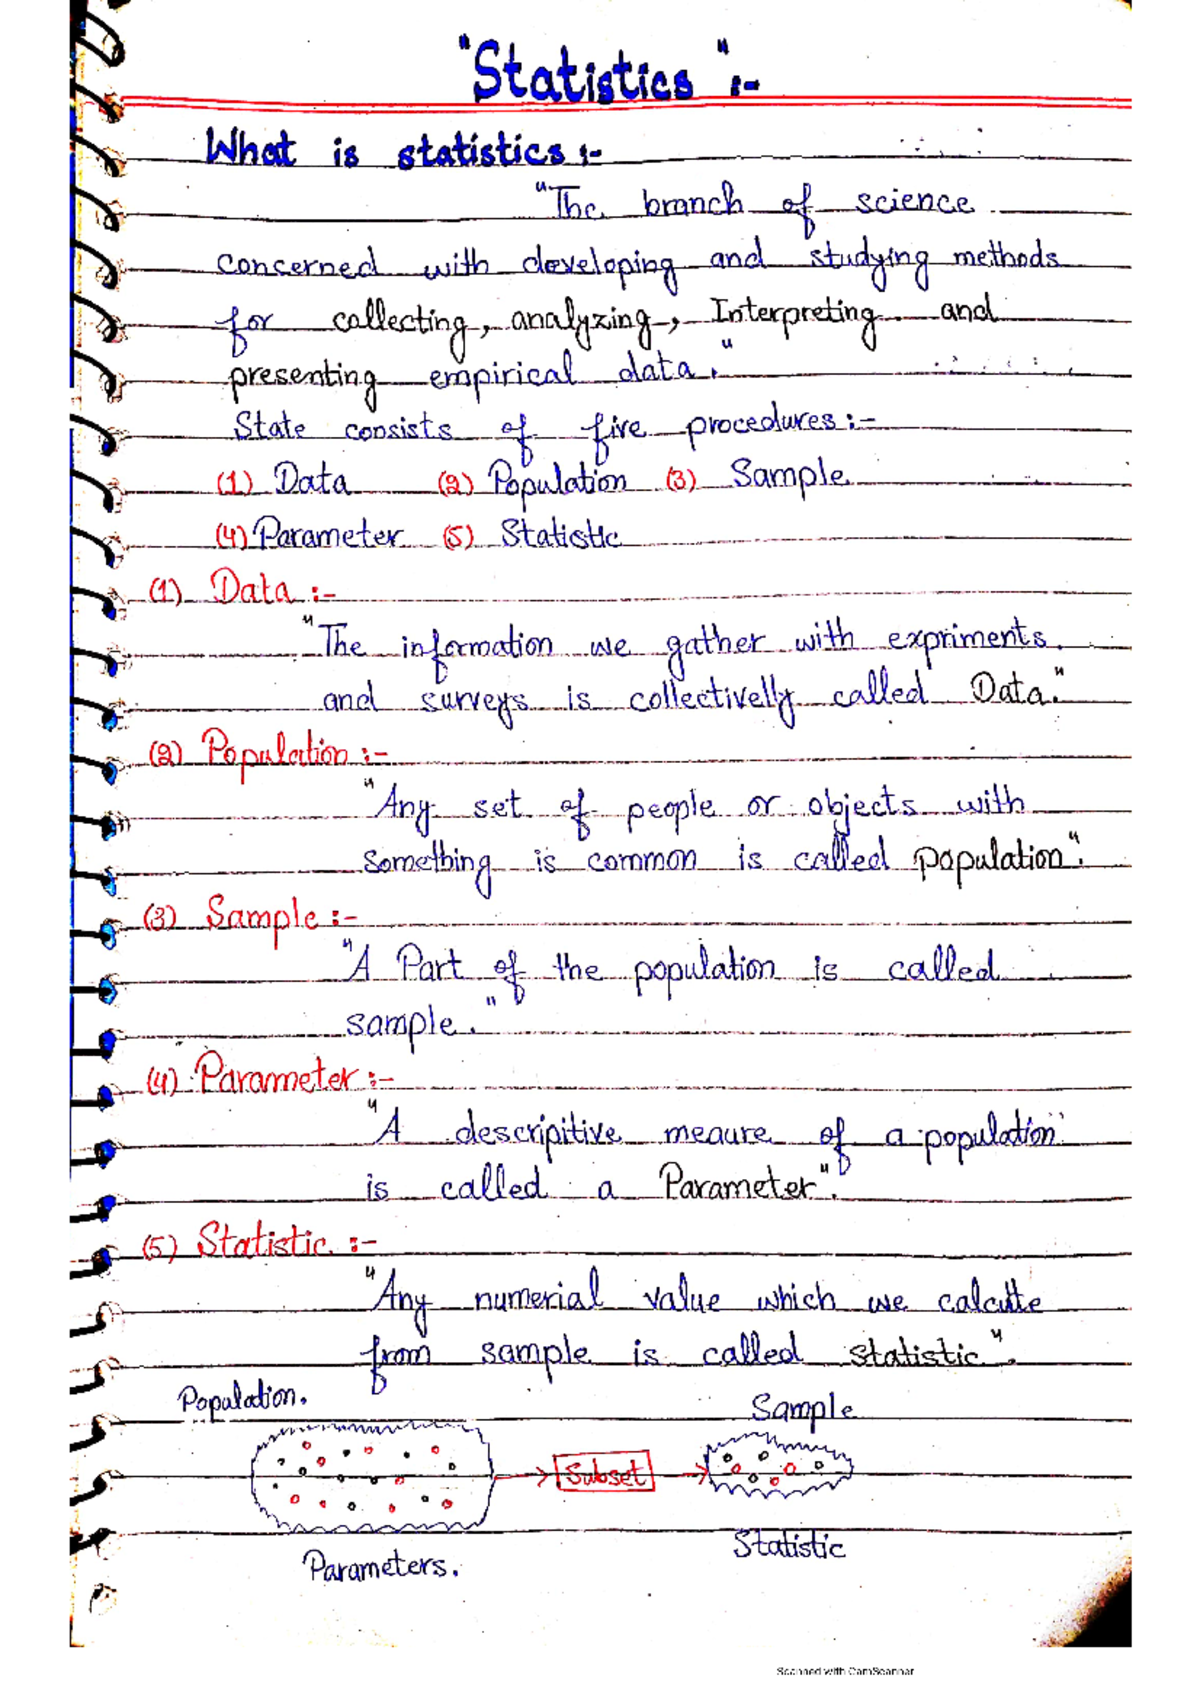 "Statistics":-
What is statistics:-
"The branch of science
concerned with developing and studying methods
for collecting, analyzing, Interpreting and
presenting empirical data."
State consists of five procedures:-
(1) Data (2) Population (3) Sample
(4) Parameter (5) Statistic
(1) Data:-
"The information we gather with expriments
and surveys is collectivelly called Data."
(2) Population:-
"Any set of people or objects with
something is common is called population".
(3) Sample:-
"A Part of the population is called
sample."
(4) Parameter:-
"A descripitive meaure of a population"
is called a Parameter".
(5) Statistic:-
"Any numerial value which we calculte
from sample is called statistic".
Population. Sample
Subset
Parameters. Statistic
Scanned with CamScanner